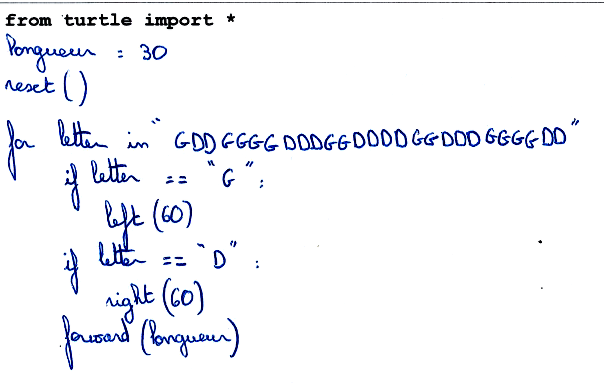 from turtle import *
longueur = 30
reset()
for letter in "GDDGGGGDDDGGDDDDGGDDDGGGGDD"
if letter == "G":
left(60)
if letter == "D":
right(60)
forward(longueur)